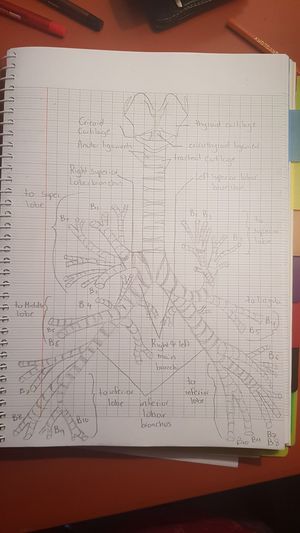 Cricoid
Cartilage
thyroid cartilage
Anular ligaments
cricothyroid ligament
tracheal cartilage
Right superior
lobar bronchus
left superior lobar
to super
lobe
B1
B2
B3
to
superior
lobe
to Middle
lobe
B4
B5
to lingula
B4
B5
Right & left
main
bronchi
B6
B6
to inferior
lobe
inferior
lobar
bronchus
to
inferior
lobe
B8
B9
B10
B10
B9